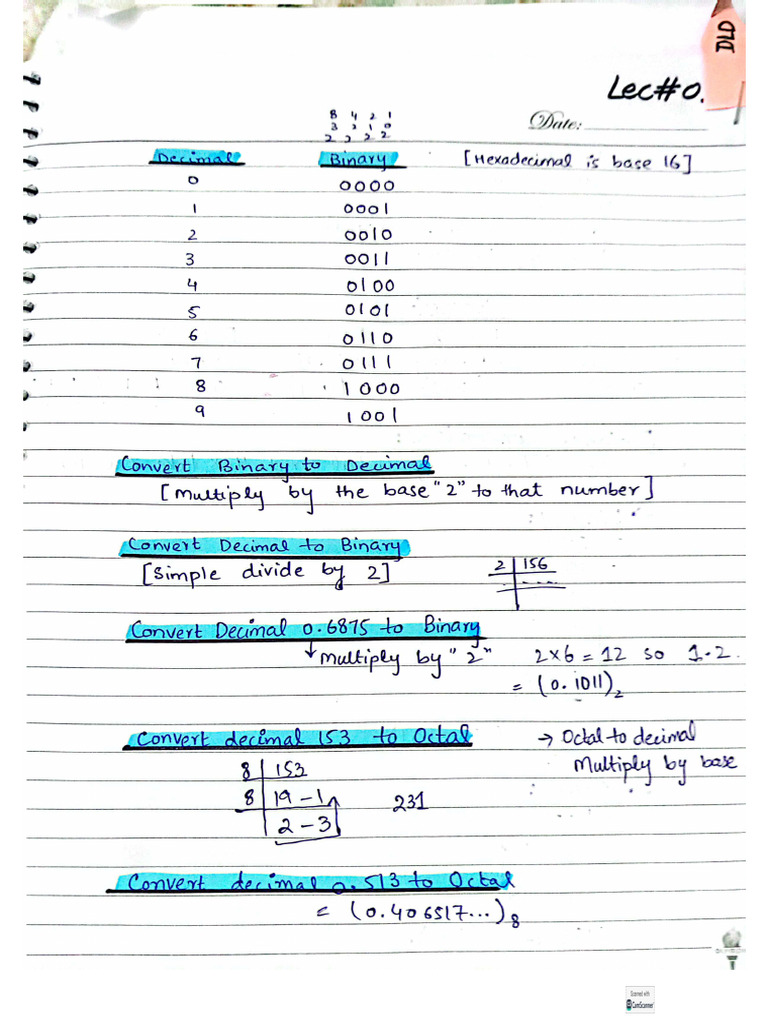 DLD
Lec#0.
Date:
8 4 2 1
3 2 1 0
2 2 2 2
Decimal Binary [Hexadecimal is base 16]
0 0000
1 0001
2 0010
3 0011
4 0100
5 0101
6 0110
7 0111
8 1000
9 1001
Convert Binary to Decimal
[Multiply by the base "2" to that number]
Convert Decimal to Binary
[Simple divide by 2] 2 | 156
Convert Decimal 0.6875 to Binary
↓ Multiply by "2" 2×6 = 12 so 1.2
= (0.1011)₂
Convert decimal 153 to Octal → Octal to decimal
8 | 153 Multiply by base
8 | 19 - 1 231
2 - 3
Convert decimal 0.513 to Octal
= (0.406517...)₈
Scanned with
CamScanner